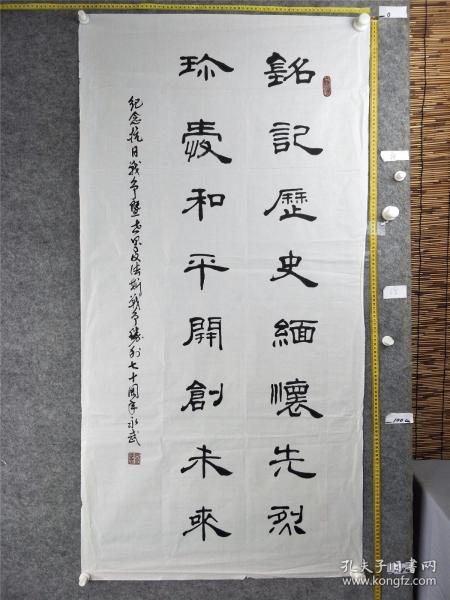 銘記歷史緬懷先烈
珍愛和平開創未來
纪念抗日战争暨世界反法斯战争胜利七十周年永武
孔夫子旧书网
www.kongfz.com